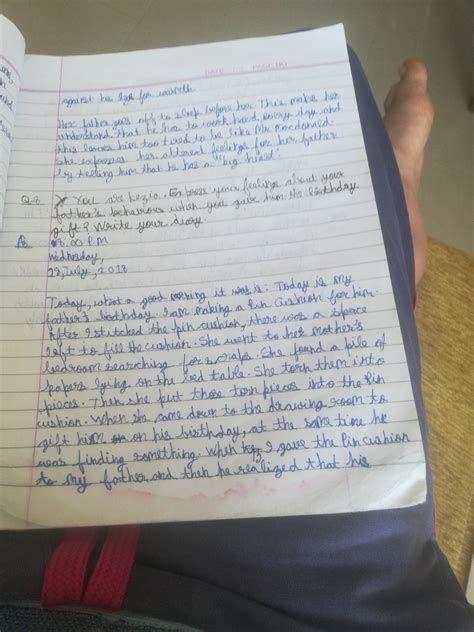 against his legs for warmth
Her father goes off to sleep before her. This makes her
understand that he has to work hard every day and
this leaves him too tired to be like Mr. Macdonald.
She expresses her altered feelings for her father
by telling him that he has a "big heart".
Q-8. You are kezia. Express your feelings about your
father's behaviour when you gave him the birthday
gift? Write your diary.
A8. 08:00 P.M
Wednesday,
23, July, 2018
Today, what a good morning it was; Today is my
father's birthday. I am making a Pin cushion for him.
After I stitched the pin cushion, there was a space
left to fill the cushion. She went to her mother's
bedroom searching for scraps. She found a pile of
papers lying on the bed table. She torn them into
pieces. Then she put those torn pieces into the Pin
cushion. When she came down to the drawing room to
gift him on his birthday, at the same time he
was finding something. When I gave the Pin cushion
to my father and then he realized that his